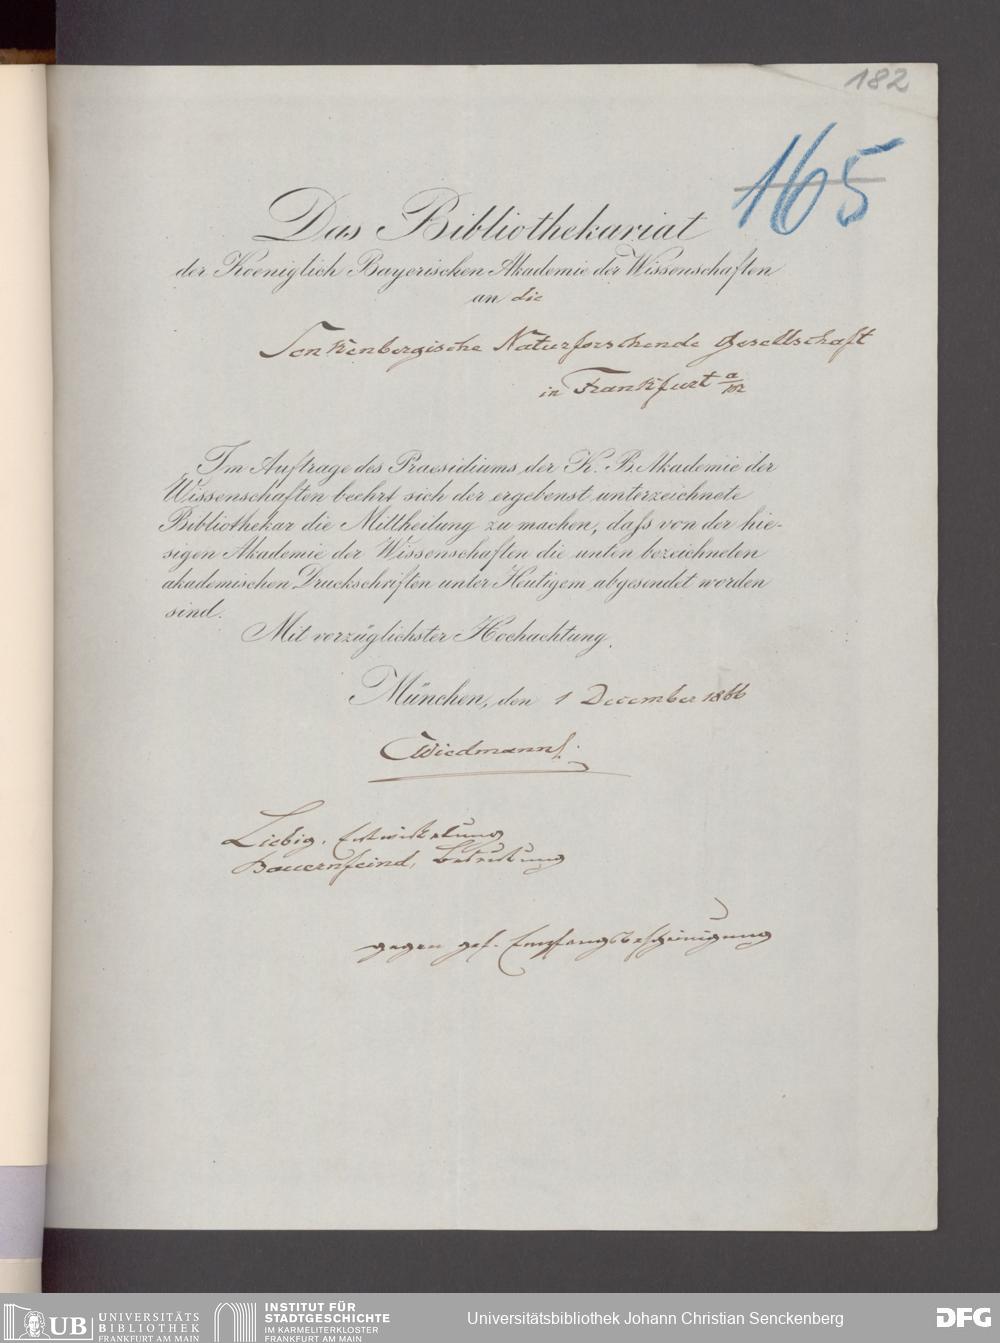 182
165
Das Bibliothekariat
der Koeniglich Bayerischen Akademie der Wissenschaften
an die
Senkenbergische Naturforschende Gesellschaft
in Frankfurt a/M
Im Auftrage des Praesidiums der K. B. Akademie der
Wissenschaften beehrt sich der ergebenst unterzeichnete
Bibliothekar die Mittheilung zu machen, daſs von der hie-
sigen Akademie der Wissenschaften die unten bezeichneten
akademischen Druckschriften unter Heutigem abgesendet worden
sind.
Mit vorzüglichster Hochachtung.
München, den 1 December 1866
Wiedmann
Liebig, Entwickelung
Bauernfeind, Bedeutung
gegen gef. Empfangsbescheinigung
UB UNIVERSITÄTS
BIBLIOTHEK
FRANKFURT AM MAIN
INSTITUT FÜR
STADTGESCHICHTE
IM KARMELITERKLOSTER
FRANKFURT AM MAIN
Universitätsbibliothek Johann Christian Senckenberg
DFG